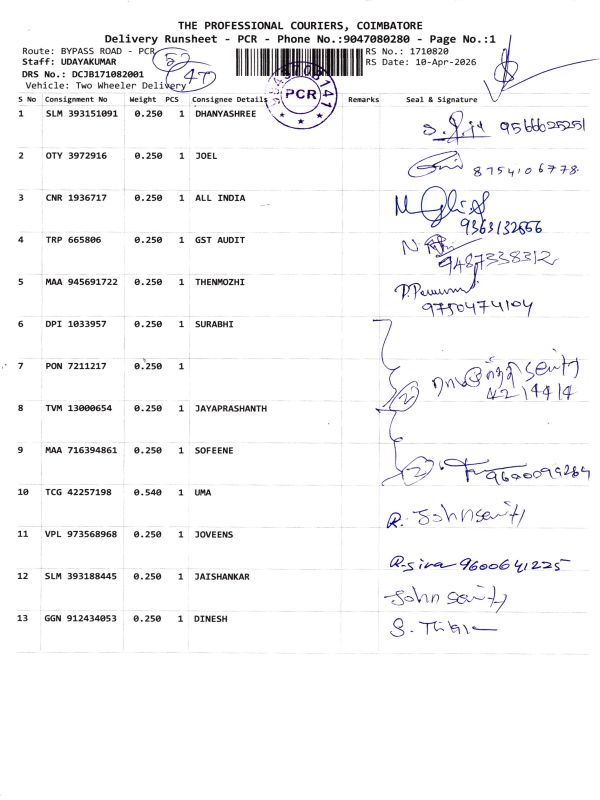 THE PROFESSIONAL COURIERS, COIMBATORE
Delivery Runsheet - PCR - Phone No.:9047080280 - Page No.:1
Route: BYPASS ROAD - PCR
RS No.: 1710820
Staff: UDAYAKUMAR
52
RS Date: 10-Apr-2026
DRS No.: DCJB171082001
47
Vehicle: Two Wheeler Delivery
PCR
S No Consignment No Weight PCS Consignee Details Remarks Seal & Signature
1 SLM 393151091 0.250 1 DHANYASHREE 9566625251
2 OTY 3972916 0.250 1 JOEL 8754106778
3 CNR 1936717 0.250 1 ALL INDIA
9363132666
4 TRP 665806 0.250 1 GST AUDIT
9487338312
5 MAA 945691722 0.250 1 THENMOZHI
9750474104
6 DPI 1033957 0.250 1 SURABHI
7 PON 7211217 0.250 1
2 security
42 14414
8 TVM 13000654 0.250 1 JAYAPRASHANTH
9 MAA 716394861 0.250 1 SOFEENE
2 9600099264
10 TCG 42257198 0.540 1 UMA
R. John security
11 VPL 973568968 0.250 1 JOVEENS
R. siva 9600641225
12 SLM 393188445 0.250 1 JAISHANKAR
John security
13 GGN 912434053 0.250 1 DINESH